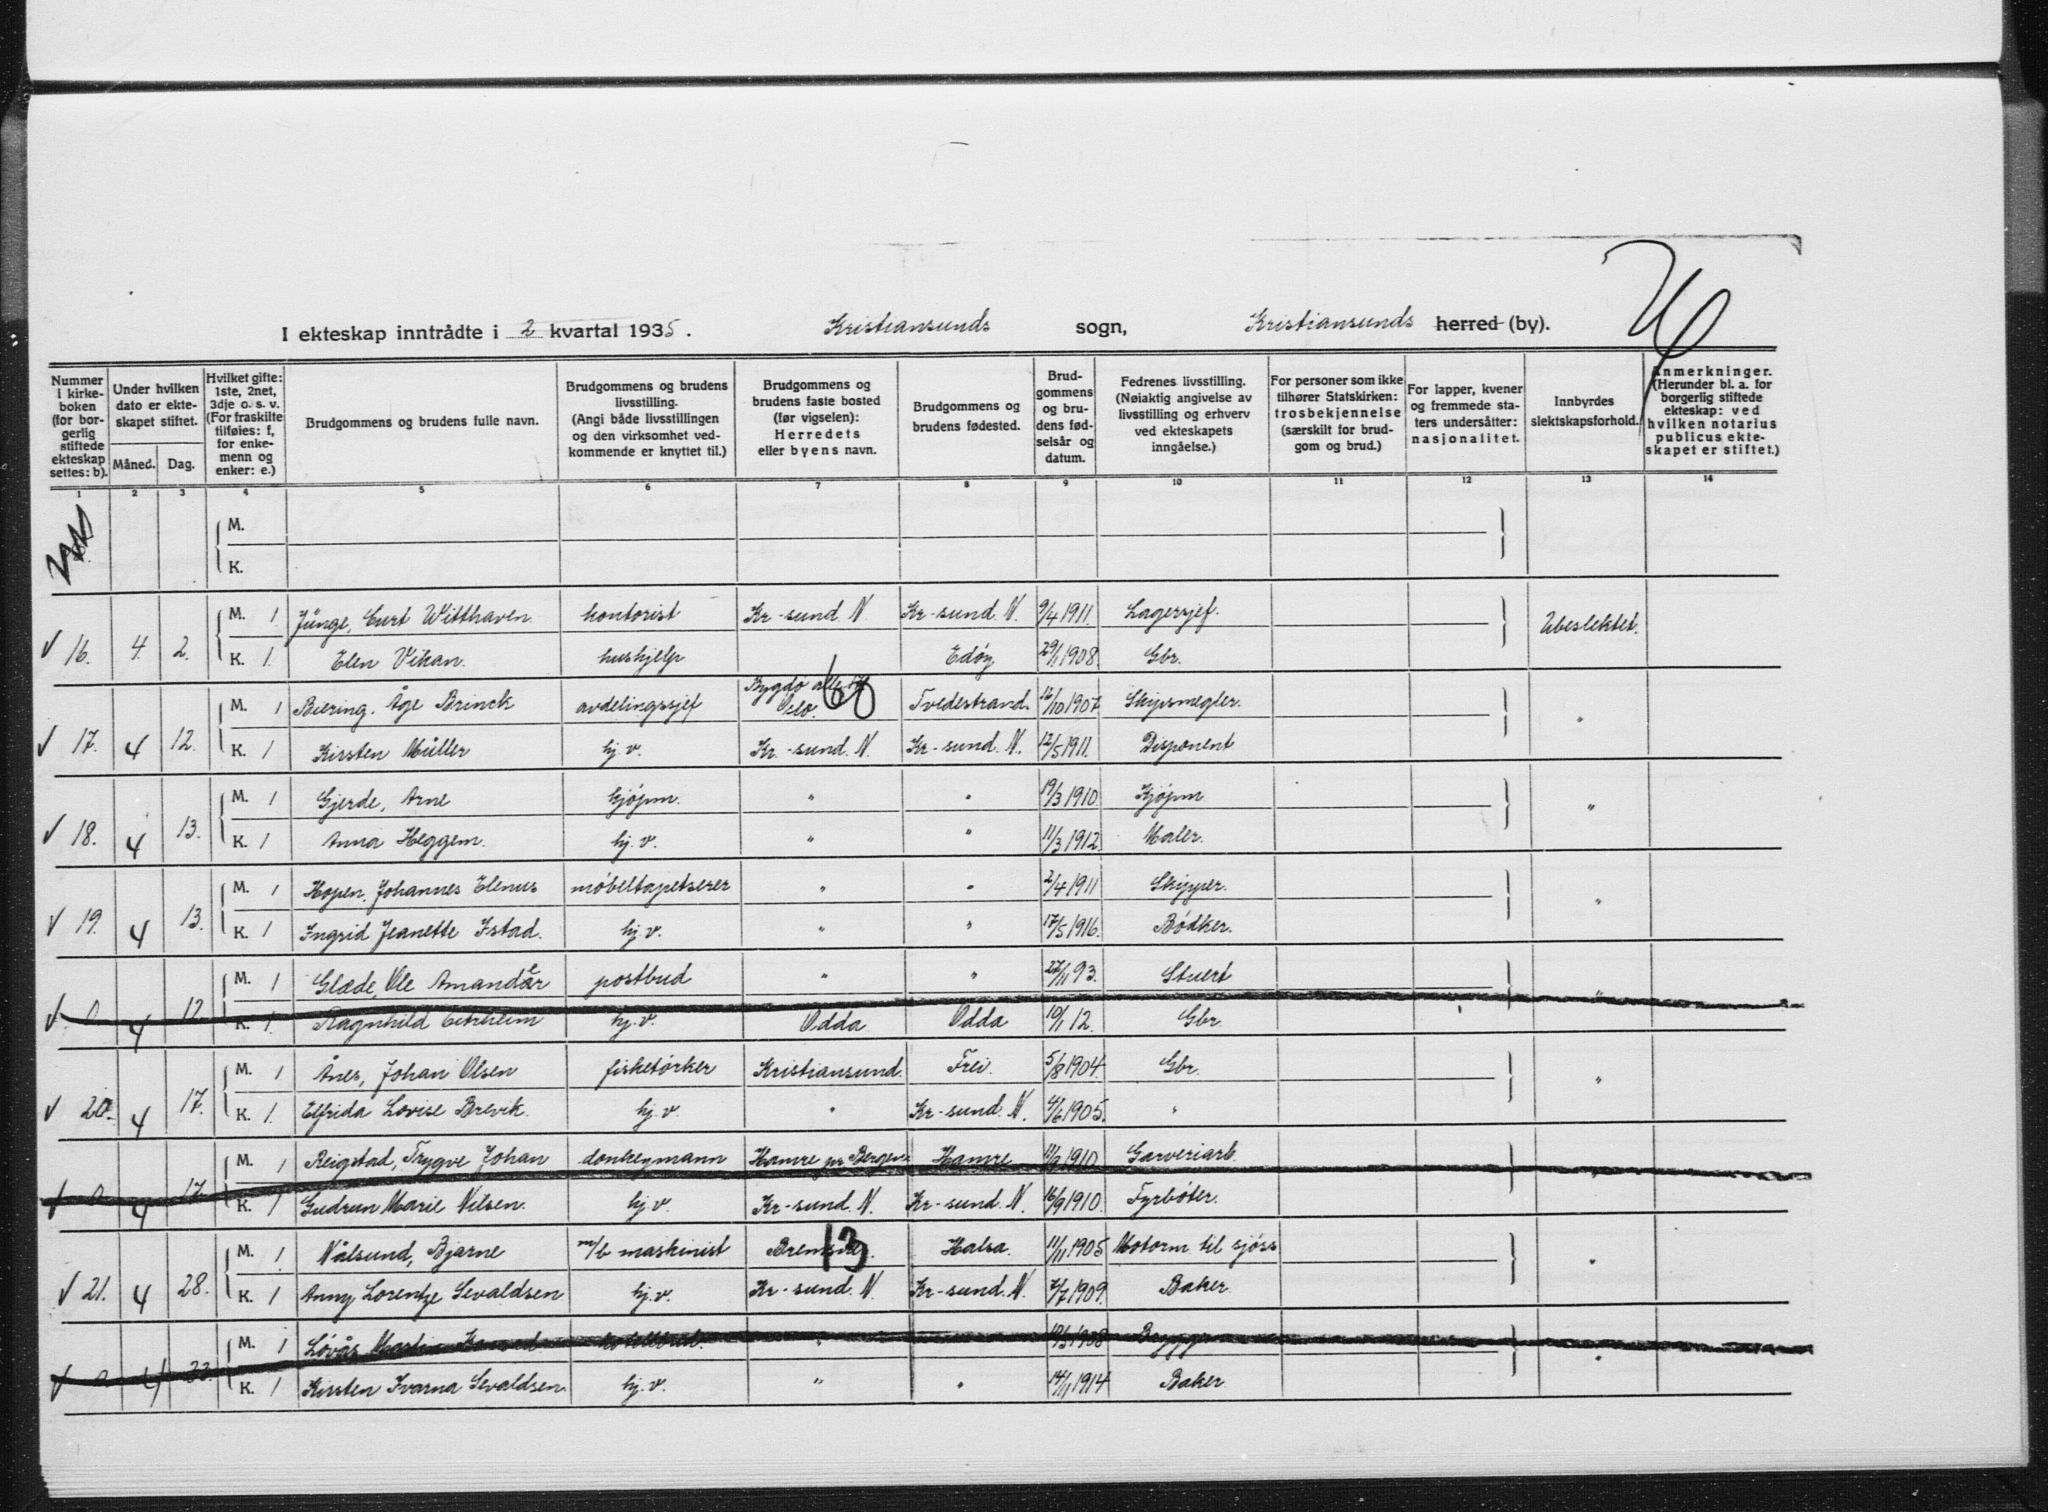 I ekteskap inntrådte i 2 kvartal 1935. Kristiansunds sogn, Kristiansunds herred (by).
Nummer i kirke-boken (for bor-gerlig stiftede ekteskap settes: b).
Under hvilken dato er ekte-skapet stiftet.
Måned. Dag.
Hvilket gifte: 1ste, 2net, 3dje o. s. v. (For fraskilte tilføies: f, for enke-menn og enker: e.)
Brudgommens og brudens fulle navn.
Brudgommens og brudens livsstilling. (Angi både livsstillingen og den virksomhet ved-kommende er knyttet til.)
Brudgommens og brudens faste bosted (før vigselen): Herredets eller byens navn.
Brudgommens og brudens fødested.
Brud-gommens og bru-dens fød-selsår og datum.
Fedrenes livsstilling. (Nøiaktig angivelse av livsstilling og erhverv ved ekteskapets inngåelse.)
For personer som ikke tilhører Statskirken: trosbekjennelse (særskilt for brud-gom og brud.)
For lapper, kvener og fremmede sta-ters undersåtter: nasjonalitet.
Innbyrdes slektskapsforhold.
Anmerkninger. (Herunder bl. a. for borgerlig stiftede ekteskap: ved hvilken notarius publicus ekte-skapet er stiftet.)
1 2 3 4 5 6 7 8 9 10 11 12 13 14
M.
K.
M. 1 Jünge, Curt Witthaven. kontorist Kr-sund N Kr-sund. N. 9/4 1911. Lagersjef. Ubeslektet.
√ 16. 4. 2. K. 1. Elen Vikan. hushjelp Edöy 29/1 1908. Gbr.
M. 1 Biering. Åge Brinck avdelingssjef Bygdø Oslo. 60 Tvedestrand. 16/10 1907. Skipsmegler. "
√ 17. 4 12. K. 1 Kirsten Müller hj. v. Kr.-sund. N. Kr-sund. N. 12/5 1911. Disponent
M. 1 Gjerde, Arne kjöpm. " " 19/3 1910. Kjöpm "
√ 18. 4 13. K. 1 Anna Heggem. hj. v. " " 11/3 1912. Maler.
M. 1 Hopen, Johannes Elenus möbeltapetserer " " 2/4 1911 Skipper. "
√ 19. 4 13. K. 1 Ingrid Jeanette Istad. hj. v. " " 17/5 1916. Bödker.
M. 1 Glæde, Ole postbud " " 27/11 93. Stuert "
√ 0 4 12 K. 1. Ragnhild hj. v. Odda Odda 10/1 12. Gbr.
M. 1 Ånes, Johan Olsen fisketörker Kristiansund. Frei. 5/8 1904. Gbr. "
√ 20. 4 17. K. 1. Elfrida Lovise Brevik. hj. v. " Kr-sund. N. 4/6 1905. "
M. 1 Reigstad, Trygve Johan donkeymann Hamre pr Bergen Hamre 11/9 1910. Garveriarb. "
√ 0 4 17. K. 1 Gudrun Marie Nilsen. hj. v. Kr-sund. N. Kr-sund. N. 16/9 1910. Fyrböter.
M. 1 Nålsund, Bjarne m/b maskinist 13 Halsa. 11/11 1905 Motorm til sjöss "
√ 21. 4 28. K. 1 Anny Lorentze Sevaldsen hj. v. Kr-sund. N. Kr-sund. N. 7/7 1909. Baker
M. 1 Lövås 1908 "
√ 4 K. 1 Kirsten Ivarna Sevaldsen. hj. v. " " 14/11 1914 Baker